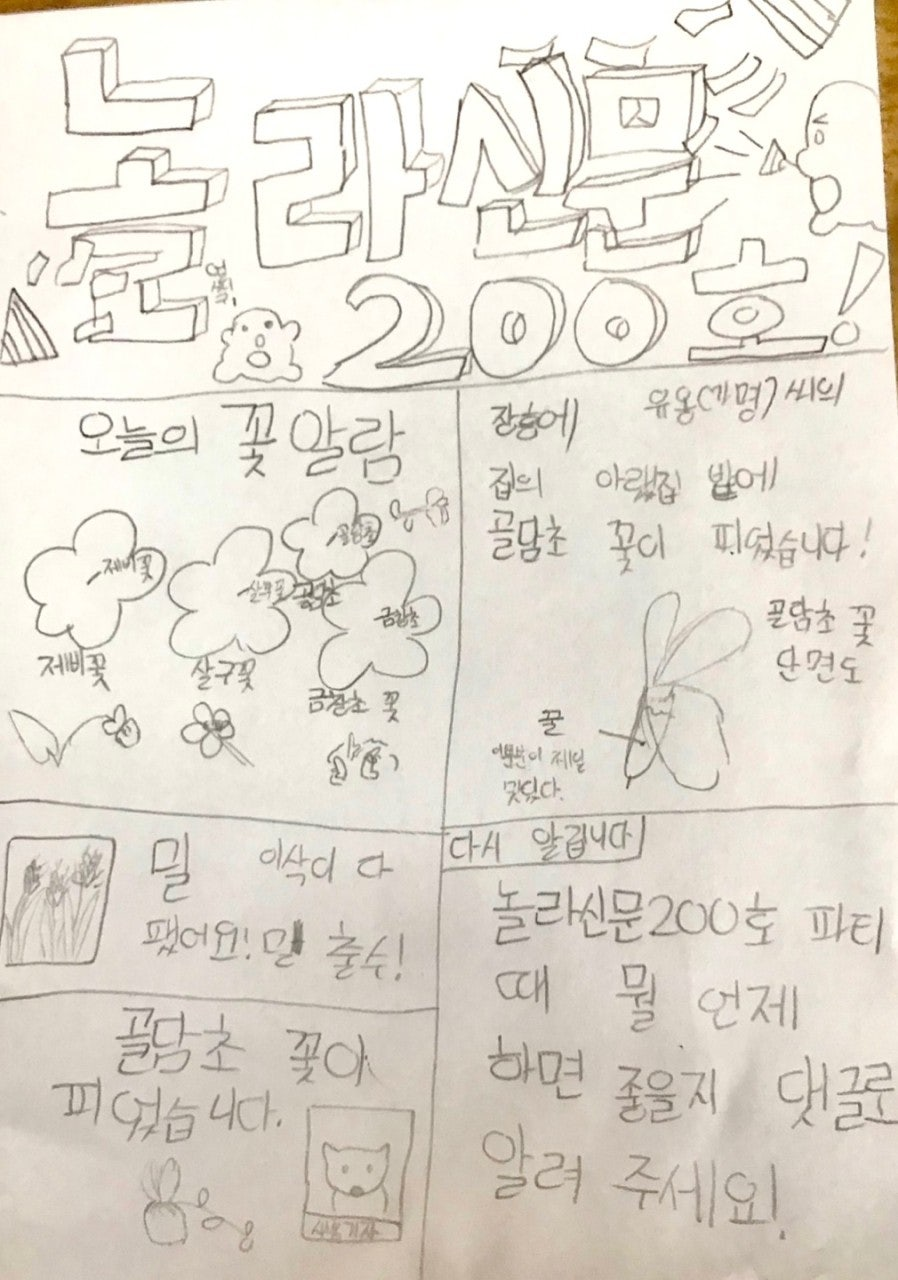 놀라신문
200호!
오늘의 꽃 알람
제비꽃
살구꽃
골담초
금창초
제비꽃
살구꽃
골담초
금창초 꽃
장흥에 유옹(가명) 씨의
집의 아랫집 밭에
골담초 꽃이 피었습니다!
골담초 꽃
단면도
꿀
이부분이 제일
맛있다.
밀 이삭이 다
팼어요! 밀 출수!
골담초 꽃이
피었습니다.
다시 알립니다
놀라신문200호 파티
때 뭘 언제
하면 좋을지 댓글로
알려 주세요!